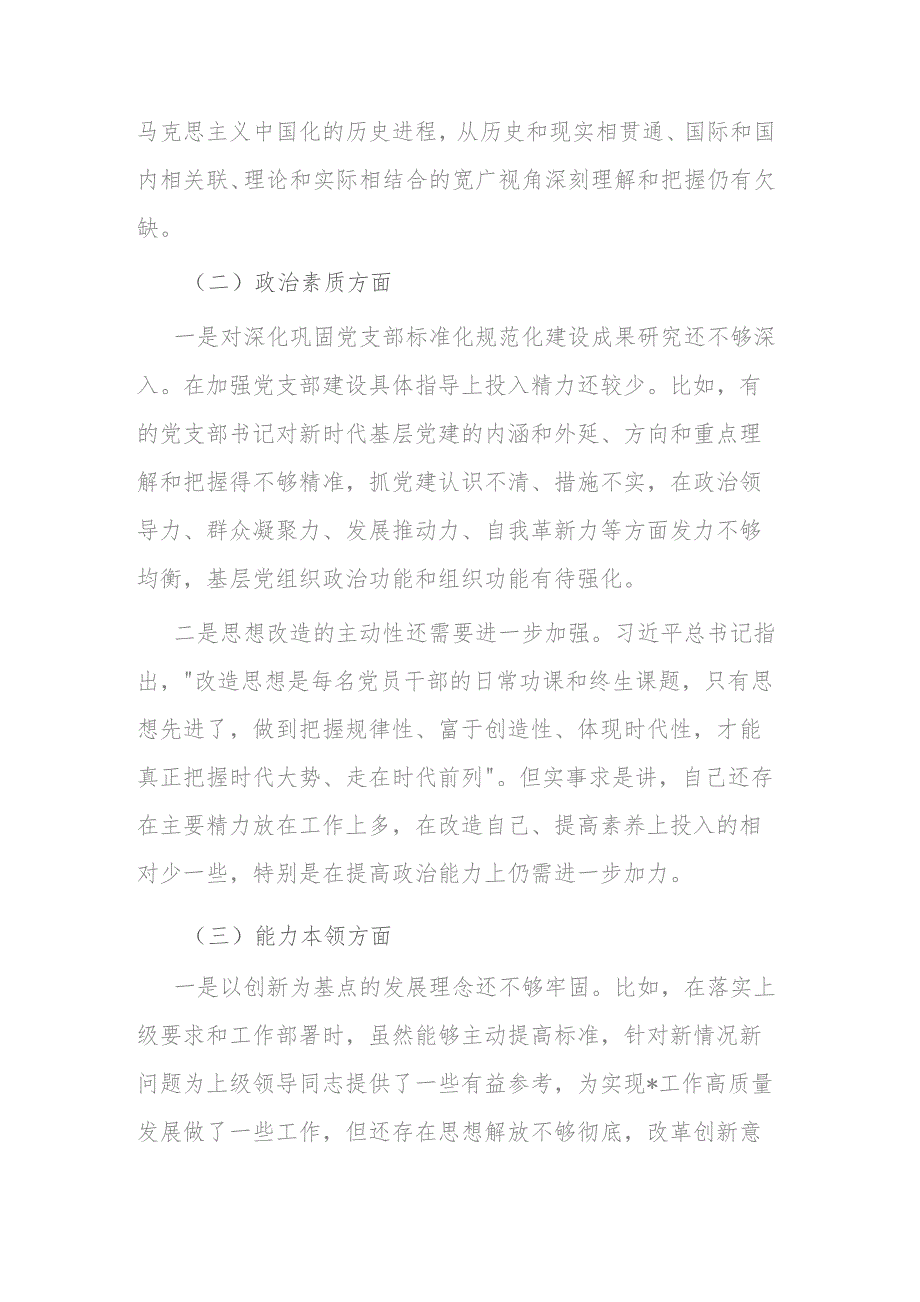 马克思主义中国化的历史进程，从历史和现实相贯通、国际和国
内相关联、理论和实际相结合的宽广视角深刻理解和把握仍有欠
缺。
（二）政治素质方面
一是对深化巩固党支部标准化规范化建设成果研究还不够深
入。在加强党支部建设具体指导上投入精力还较少。比如，有
的党支部书记对新时代基层党建的内涵和外延、方向和重点理
解和把握得不够精准，抓党建认识不清、措施不实，在政治领
导力、群众凝聚力、发展推动力、自我革新力等方面发力不够
均衡，基层党组织政治功能和组织功能有待强化。
二是思想改造的主动性还需要进一步加强。习近平总书记指
出，"改造思想是每名党员干部的日常功课和终生课题，只有思
想先进了，做到把握规律性、富于创造性、体现时代性，才能
真正把握时代大势、走在时代前列"。但实事求是讲，自己还存
在主要精力放在工作上多，在改造自己、提高素养上投入的相
对少一些，特别是在提高政治能力上仍需进一步加力。
（三）能力本领方面
一是以创新为基点的发展理念还不够牢固。比如，在落实上
级要求和工作部署时，虽然能够主动提高标准，针对新情况新
问题为上级领导同志提供了一些有益参考，为实现*工作高质量
发展做了一些工作，但还存在思想解放不够彻底，改革创新意